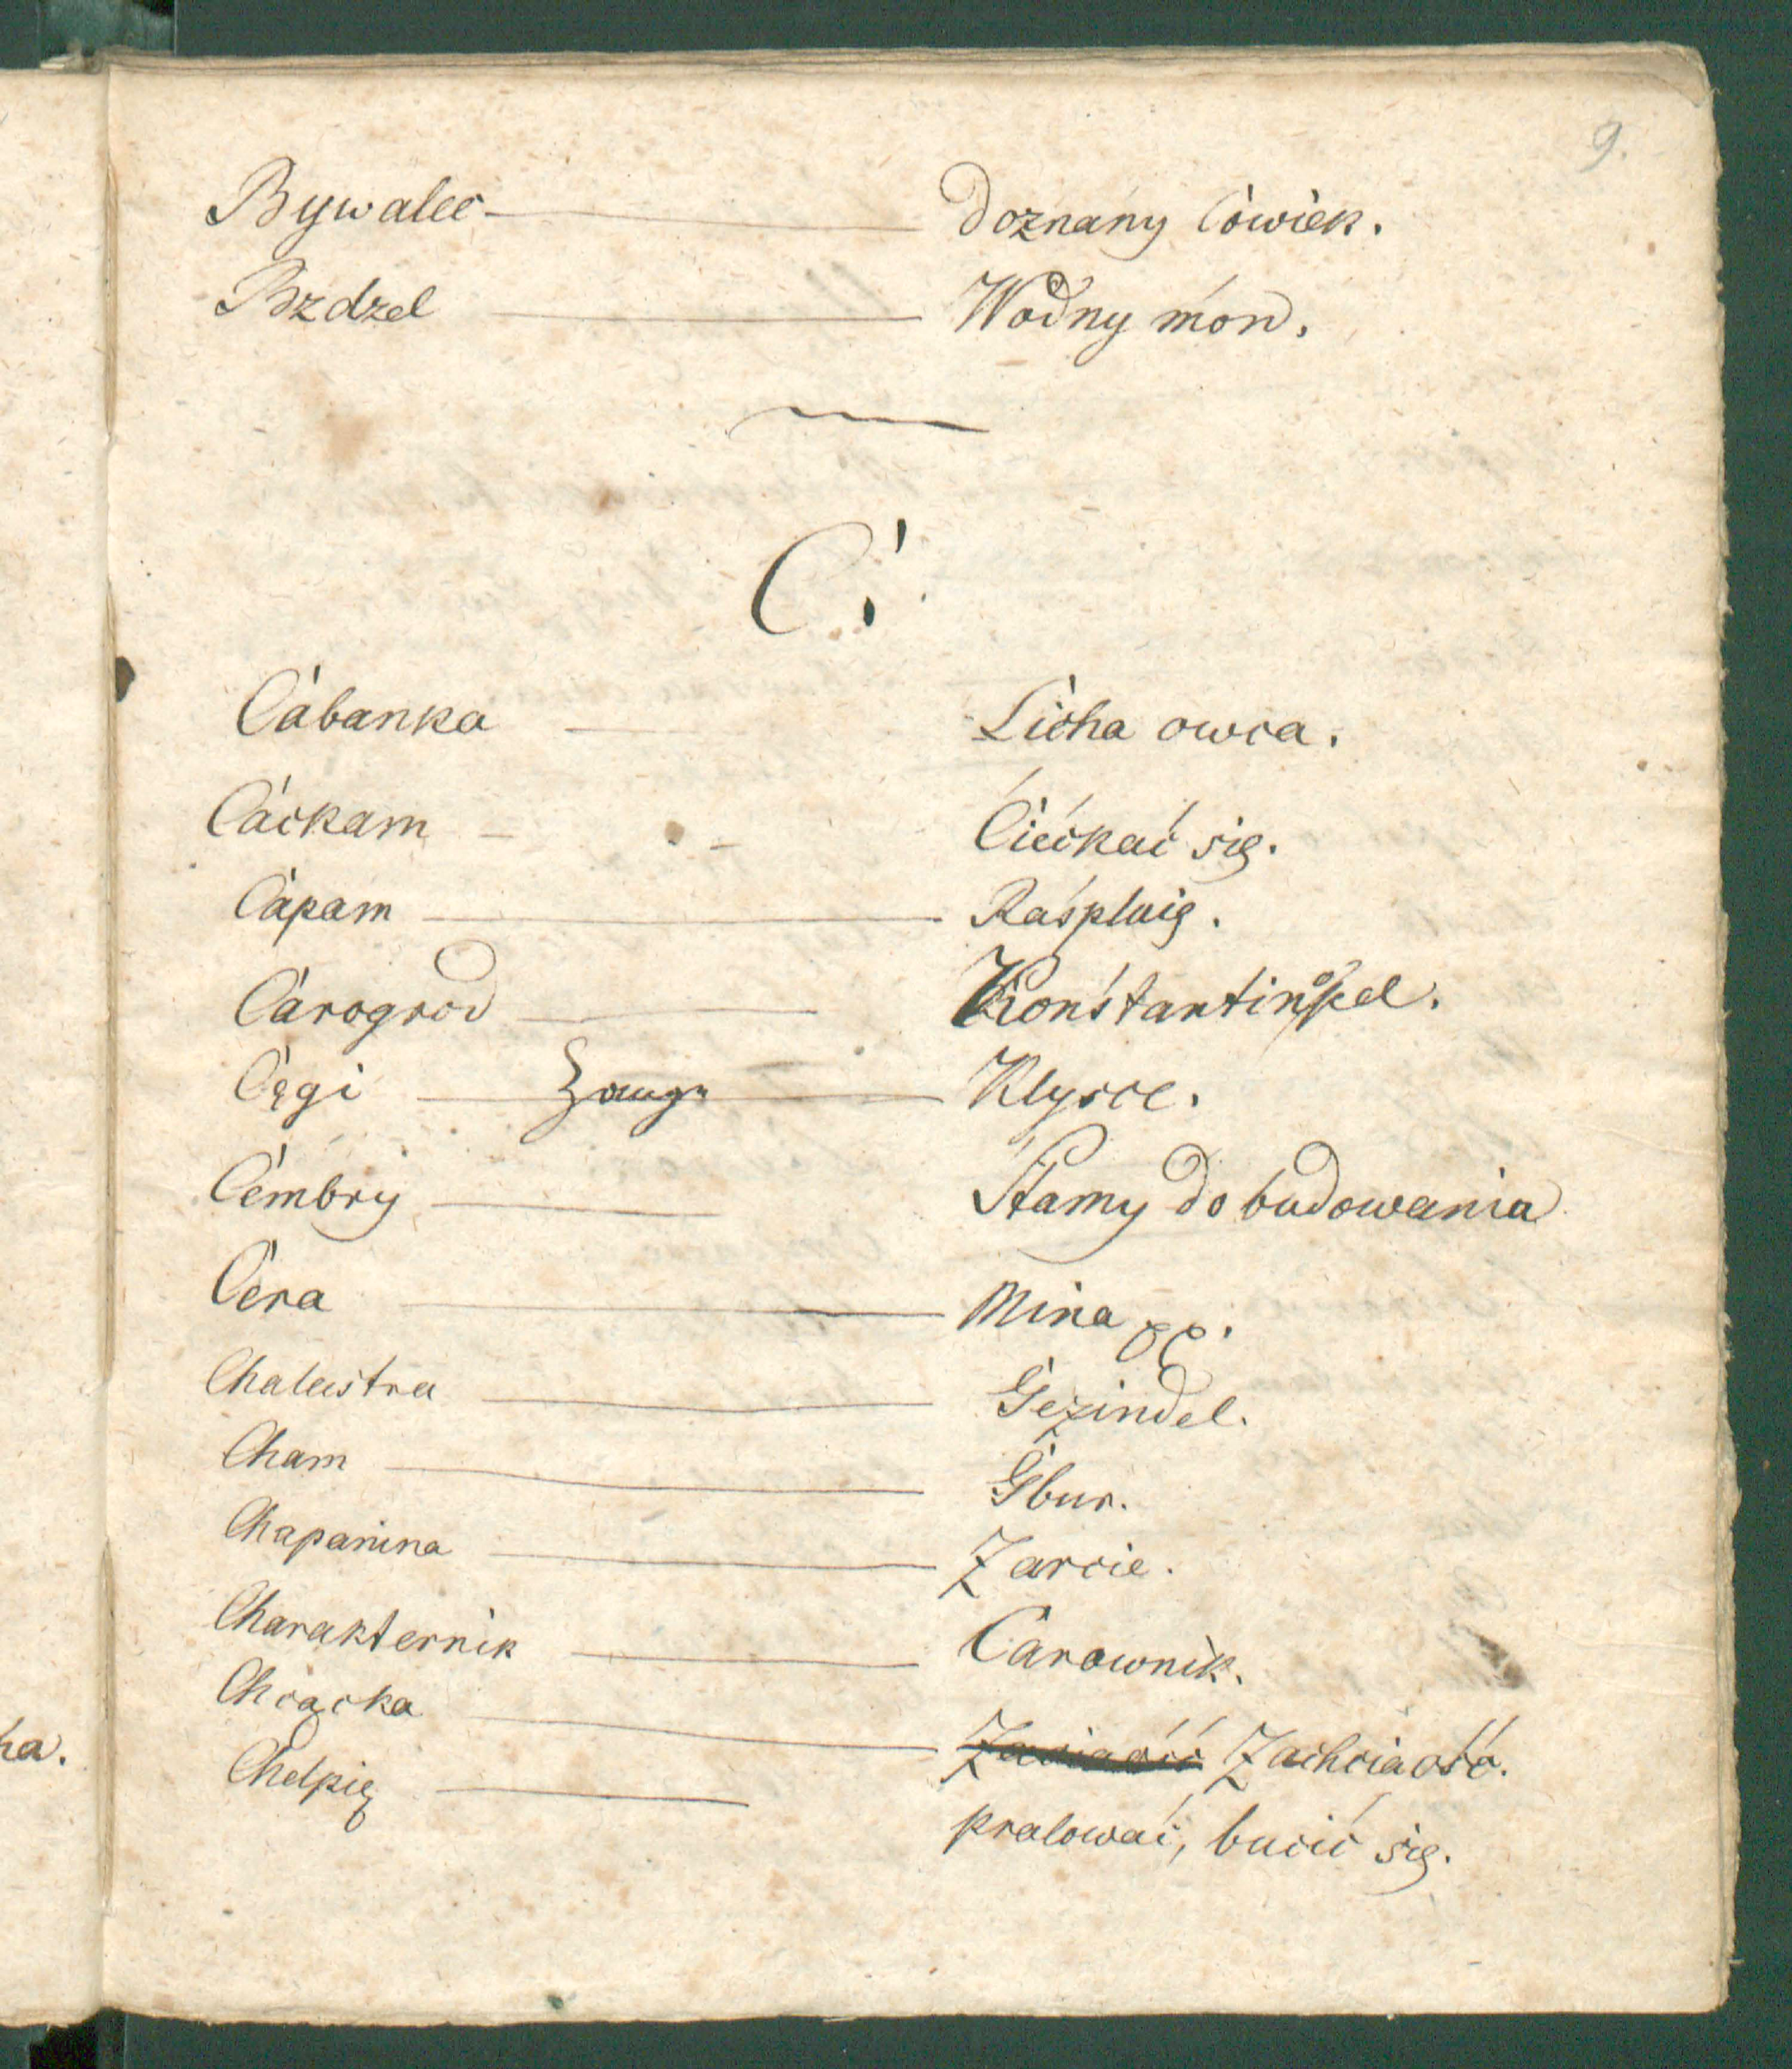 9.
Bywalec — Doznany Cówiek.
Bzdzel — Wodny mon.
C!
Cabanka — Licha owca.
Cackam — Ciéckać się.
Capam — Raspluię.
Carogrod — Konstantinopel.
Cęgi — Zange — Klysce.
Cembry — Stamy do budowania
Cera — Mina pp.
Chalastra — Gezindel.
Cham — Gbur.
Chapanina — Zarcie.
Charakternik — Carownik.
Chcącka — Zachciaość.
Chelpię — pralować, bucić się.
ha.